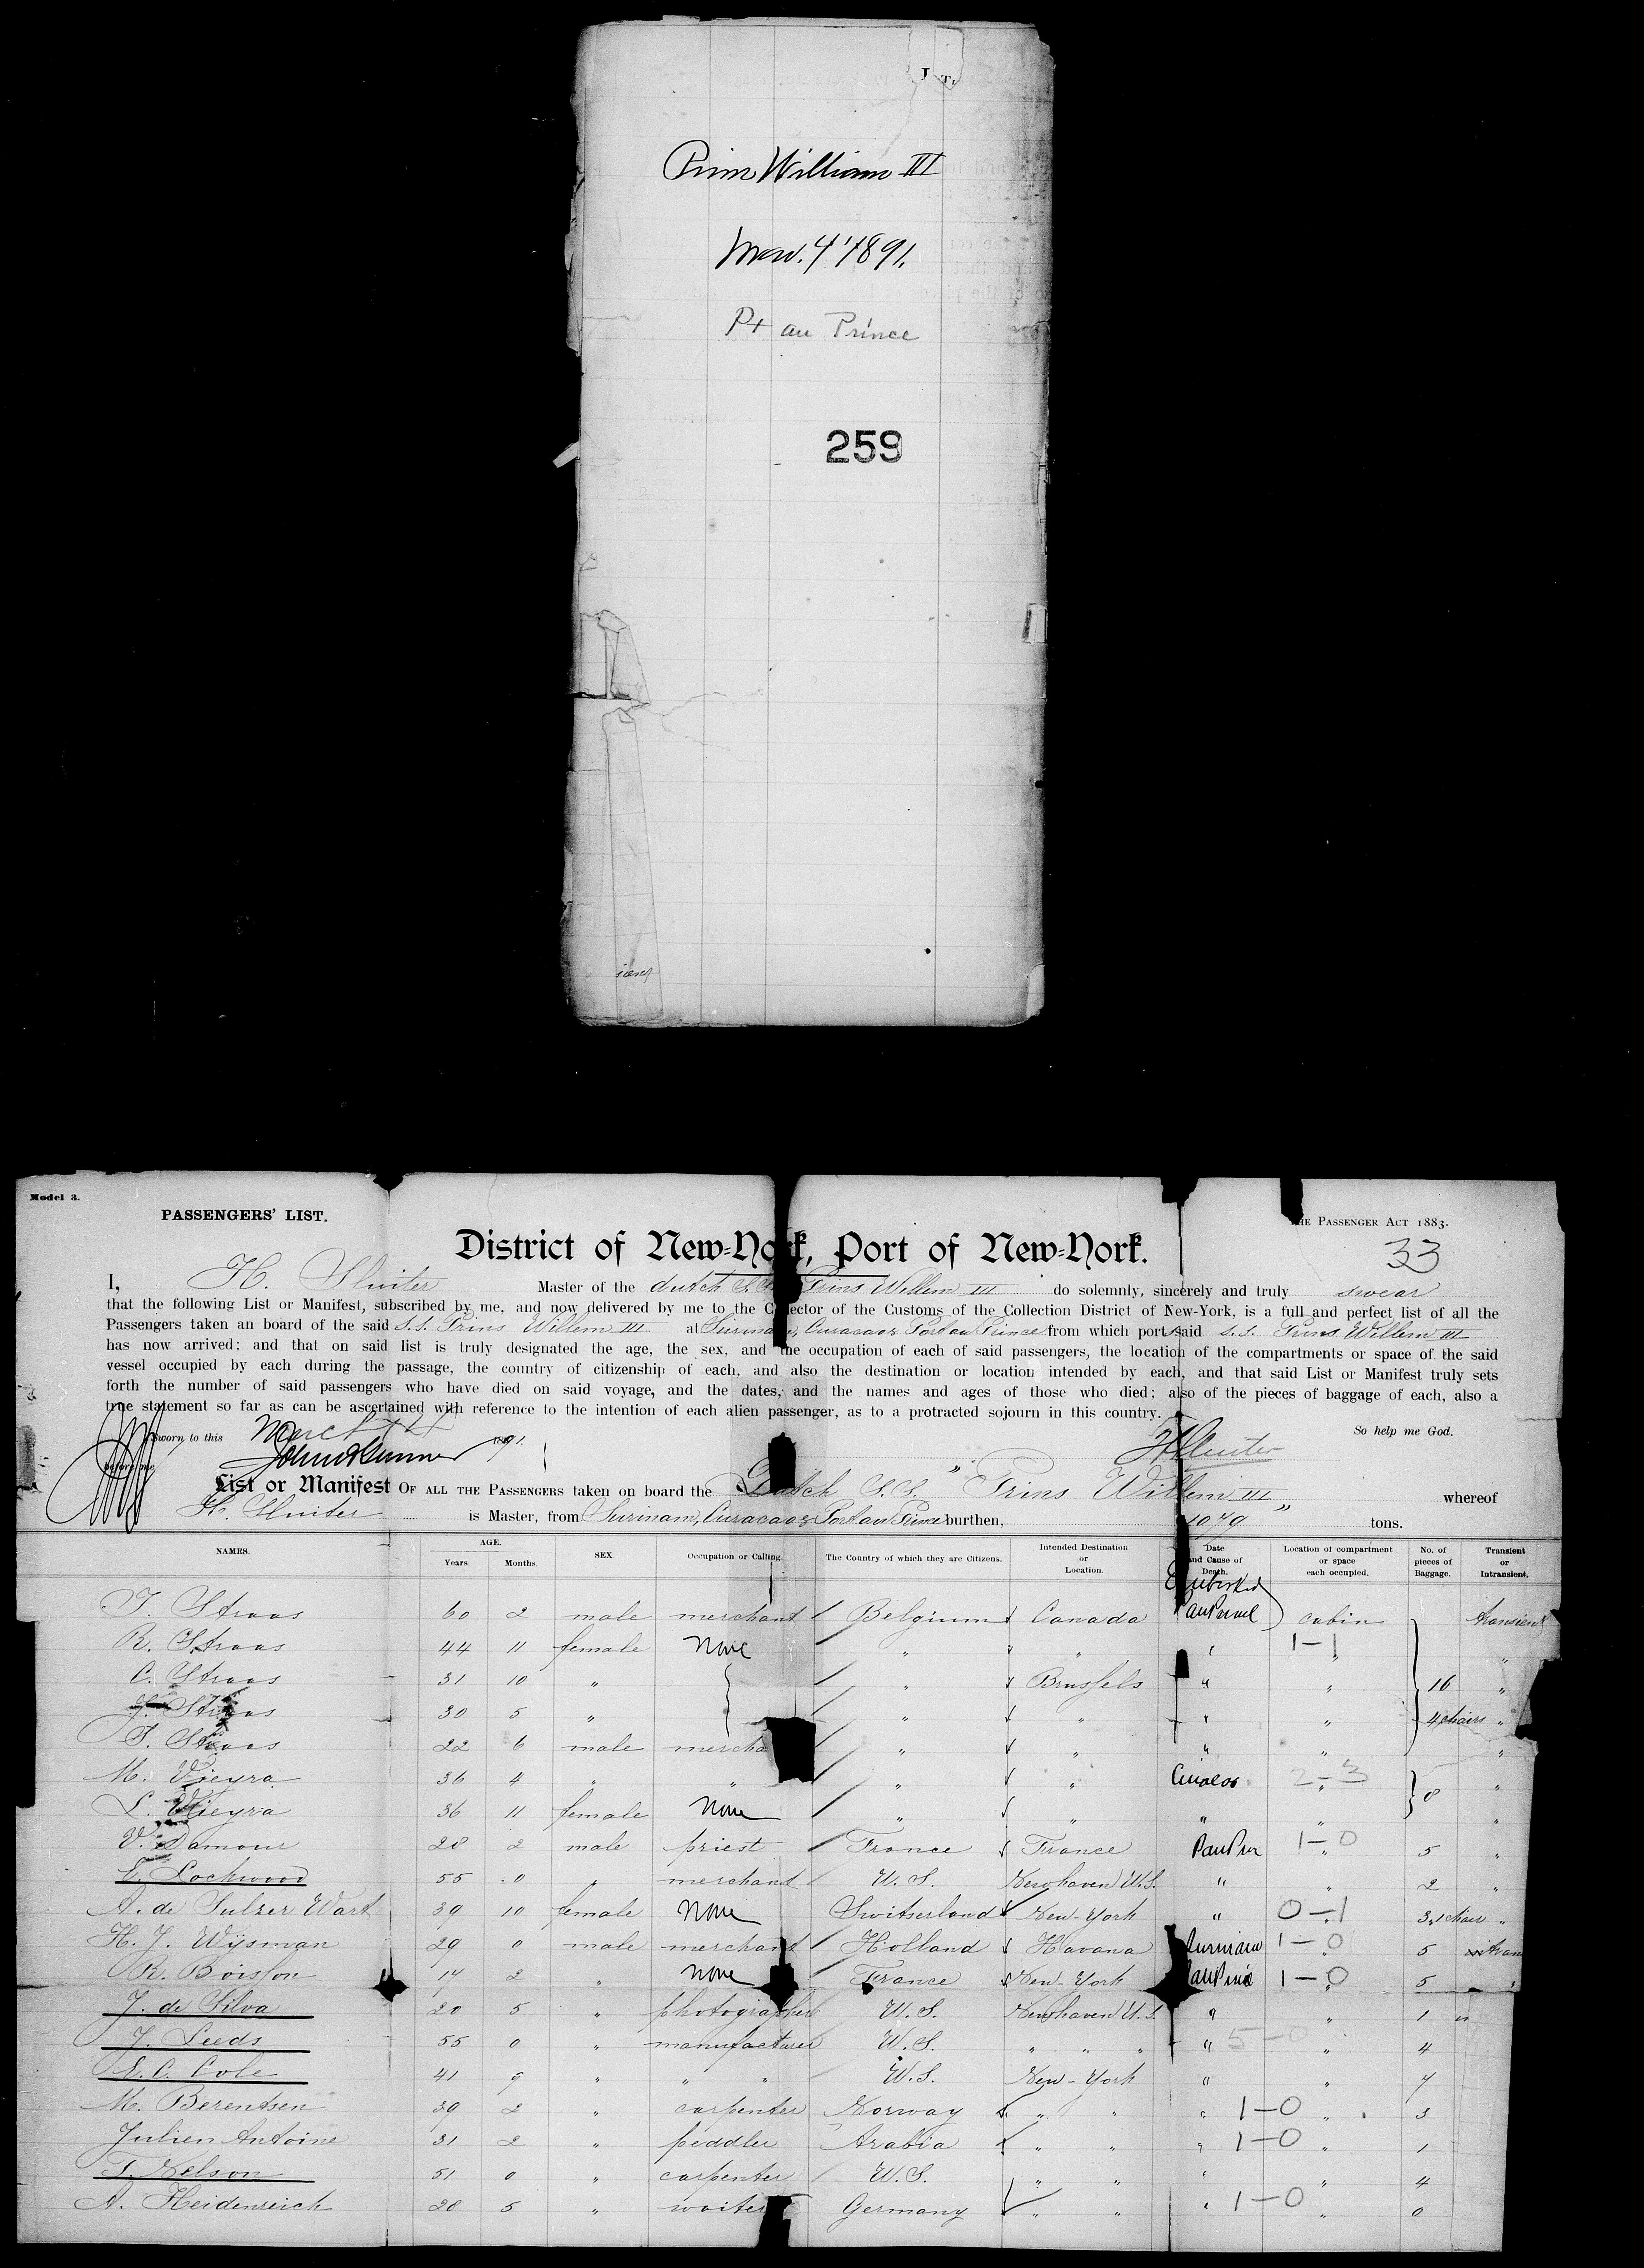 J T.
Prinz William III
Mar. 4' 1891.
Pt au Prince
259
Model 3.
PASSENGERS' LIST.
THE PASSENGER ACT 1883.
33
District of New-York, Port of New-York.
I, H. Sluiter Master of the dutch S.S. Prins Willem III do solemnly, sincerely and truly swear
that the following List or Manifest, subscribed by me, and now delivered by me to the Collector of the Customs of the Collection District of New-York, is a full and perfect list of all the
Passengers taken an board of the said S.S. Prins Willem III at Surinam, Curacao & Port au Prince from which port said S.S. Prins Willem III
has now arrived; and that on said list is truly designated the age, the sex, and the occupation of each of said passengers, the location of the compartments or space of the said
vessel occupied by each during the passage, the country of citizenship of each, and also the destination or location intended by each, and that said List or Manifest truly sets
forth the number of said passengers who have died on said voyage, and the dates, and the names and ages of those who died; also of the pieces of baggage of each, also a
true statement so far as can be ascertained with reference to the intention of each alien passenger, as to a protracted sojourn in this country.
Sworn to this March 4 1891. So help me God.
before me HSluiter
List or Manifest OF ALL THE PASSENGERS taken on board the Dutch S.S. "Prins Willem III" whereof
H. Sluiter is Master, from Surinam, Curacao & Port au Prince burthen, 1079 tons.
NAMES. AGE. Years Months. SEX. Occupation or Calling. The Country of which they are Citizens. Intended Destination or Location. Date and Cause of Death. Location of compartment or space each occupied. No. of pieces of Baggage. Transient or Intransient.
Embarked
T. Straas 60 2 male merchant Belgium Canada cabin transient
R. Straas 44 11 female None " " " 1-1 "
C. Straas 31 10 " " Brussels " " 16 "
Straas 30 5 " " " " " 4 chairs "
T. Straas 22 6 male mercha " " " " "
M. Vieyra 36 4 " " " " Curacao 2-3 8 "
L. Vieyra 36 11 female None " " " " "
V. Damour 28 2 male priest France France PauPrin 1-0 5 "
E. Lockwood 55 0 " merchant U.S. Newhaven U.S. " " 2 "
A. de Sulzer Wart 39 10 female None Switserland New-York " 0-1 3,1 chair "
H. J. Wijsman 29 0 male merchant Holland Havana Surinam 1-0 5
R. Boisson 14 2 " None France New-York auPrince 1-0 5 "
J. de Silva 20 5 " photographer U.S. Newhaven U.S. " " 1
J. Leeds 55 0 " manufacturer U.S. " " " " 5-0 " 4
E. C. Cole 41 9 " " " U.S. New-York " " 7
M. Berentsen 39 2 " carpenter Norway " " " 1-0 " 3
Julien Antoine 31 2 " peddler Arabia " " " 1-0 " 1
T. Nelson 51 0 " carpenter U.S. " " " " 4
A. Heidenreich 28 5 " waiter Germany " " " 1-0 " 0